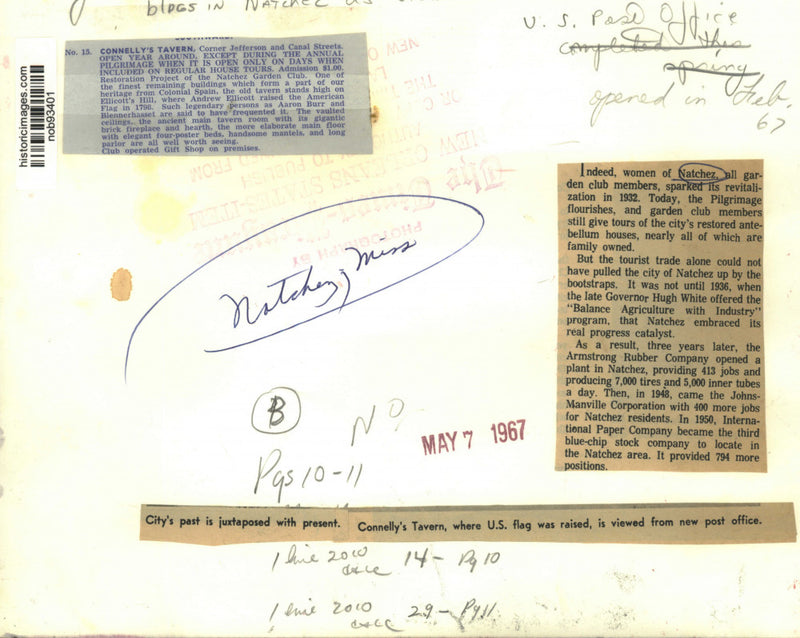 bldgs in Natchez
U. S. Post Office
completed this
spring
opened in Feb.
67
historicimages.com
nob93401
No. 15. CONNELLY'S TAVERN, Corner Jefferson and Canal Streets.
OPEN YEAR AROUND, EXCEPT DURING THE ANNUAL
PILGRIMAGE WHEN IT IS OPEN ONLY ON DAYS WHEN
INCLUDED ON REGULAR HOUSE TOURS. Admission $1.00.
Restoration Project of the Natchez Garden Club. One of
the finest remaining buildings which form a part of our
heritage from Colonial Spain, the old tavern stands high on
Ellicott's Hill, where Andrew Ellicott raised the American
Flag in 1798. Such legendary persons as Aaron Burr and
Blennerhasset are said to have frequented it. The vaulted
ceilings, the ancient main tavern room with its gigantic
brick fireplace and hearth, the more elaborate main floor
with elegant four-poster beds, handsome mantels, and long
parlor are all well worth seeing.
Club operated Gift Shop on premises.
NEW ORLEANS STATES-ITEM
PHOTOGRAPH BY
Natchez, Miss
Indeed, women of Natchez, all gar-
den club members, sparked its revitali-
zation in 1932. Today, the Pilgrimage
flourishes, and garden club members
still give tours of the city's restored ante-
bellum houses, nearly all of which are
family owned.
But the tourist trade alone could not
have pulled the city of Natchez up by the
bootstraps. It was not until 1936, when
the late Governor Hugh White offered the
"Balance Agriculture with Industry"
program, that Natchez embraced its
real progress catalyst.
As a result, three years later, the
Armstrong Rubber Company opened a
plant in Natchez, providing 413 jobs and
producing 7,000 tires and 5,000 inner tubes
a day. Then, in 1948, came the Johns-
Manville Corporation with 400 more jobs
for Natchez residents. In 1950, Interna-
tional Paper Company became the third
blue-chip stock company to locate in
the Natchez area. It provided 794 more
positions.
B
NO
MAY 7 1967
Pgs 10-11
City's past is juxtaposed with present.
Connelly's Tavern, where U.S. flag was raised, is viewed from new post office.
1 line 2010 14- Pg 10
1 line 2010 29- Pg 11